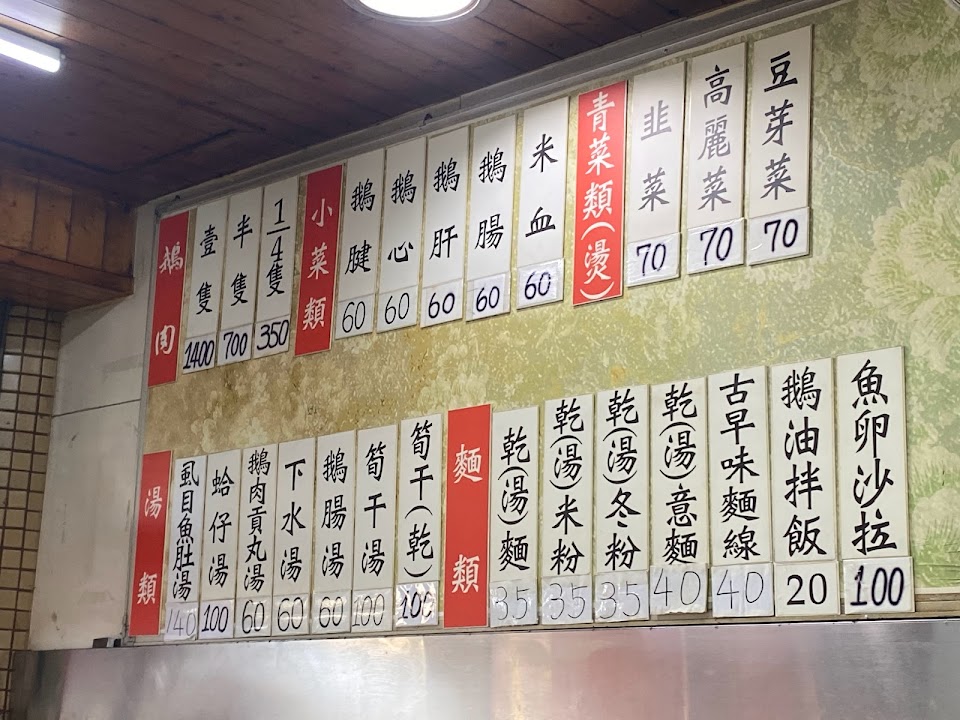 鵝肉
壹隻 1400
半隻 700
1/4隻 350
小菜類
鵝腱 60
鵝心 60
鵝肝 60
鵝腸 60
米血 60
青菜類(燙)
韭菜 70
高麗菜 70
豆芽菜 70
湯類
虱目魚肚湯 140
蛤仔湯 100
鵝肉貢丸湯 60
下水湯 60
鵝腸湯 60
筍干湯 100
筍干(乾) 100
麵類
乾(湯)麵 35
乾(湯)米粉 35
乾(湯)冬粉 35
乾(湯)意麵 40
古早味麵線 40
鵝油拌飯 20
魚卵沙拉 100